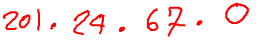 201. 24. 67. 0